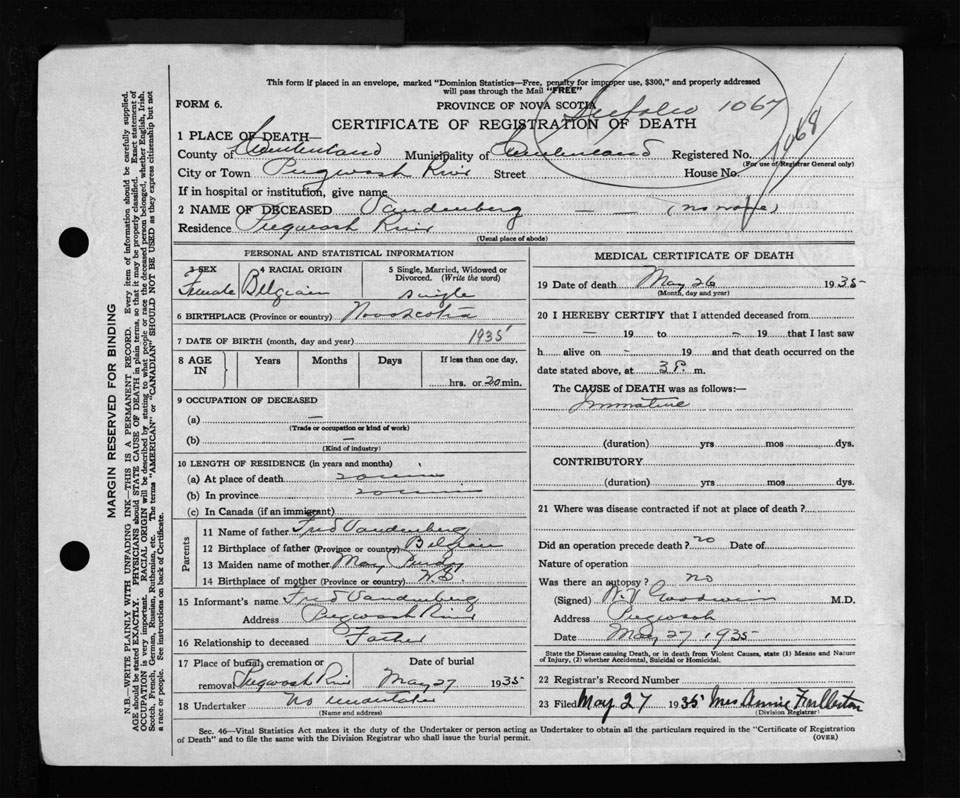 This form if placed in an envelope, marked "Dominion Statistics—Free, penalty for improper use, $300," and properly addressed
will pass through the Mail "FREE"
FORM 6.
PROVINCE OF NOVA SCOTIA
CERTIFICATE OF REGISTRATION OF DEATH
See folio 1067
1068
1 PLACE OF DEATH—
County of Cumberland Municipality of Cumberland Registered No.
(For use of Registrar General only)
City or Town Pugwash River Street House No.
If in hospital or institution, give name
2 NAME OF DECEASED Vandenberg — — (no name)
Residence Pugwash River
(Usual place of abode)
PERSONAL AND STATISTICAL INFORMATION
3 SEX 4 RACIAL ORIGIN 5 Single, Married, Widowed or Divorced. (Write the word)
Female Belgian single
6 BIRTHPLACE (Province or country) Nova Scotia
7 DATE OF BIRTH (month, day and year) 1935
8 AGE IN Years Months Days If less than one day,
hrs. or 20 min.
9 OCCUPATION OF DECEASED
(a) —
(Trade or occupation or kind of work)
(b) —
(Kind of industry)
10 LENGTH OF RESIDENCE (in years and months)
(a) At place of death 20 min
(b) In province 20 min
(c) In Canada (if an immigrant)
Parents
11 Name of father Fred Vandenberg
12 Birthplace of father (Province or country) Belgian
13 Maiden name of mother May
14 Birthplace of mother (Province or country) N.B.
15 Informant's name Fred Vandenberg
Address Pugwash River
16 Relationship to deceased Father
17 Place of burial, cremation or removal Pugwash River Date of burial May 27 1935
18 Undertaker No undertaker
(Name and address)
MEDICAL CERTIFICATE OF DEATH
19 Date of death May 26 1935
(Month, day and year)
20 I HEREBY CERTIFY that I attended deceased from
— 19 to — 19 that I last saw
h alive on - 19 and that death occurred on the
date stated above, at 3 P. m.
The CAUSE of DEATH was as follows:—
Immature
(duration) yrs mos dys.
CONTRIBUTORY
(duration) yrs mos dys.
21 Where was disease contracted if not at place of death?
Did an operation precede death? no Date of
Nature of operation
Was there an autopsy? no
(Signed) Goodwin M.D.
Address Pugwash
Date May 27 1935
State the Disease causing Death, or in death from Violent Causes, state (1) Means and Nature
of Injury, (2) whether Accidental, Suicidal or Homicidal.
22 Registrar's Record Number
23 Filed May 27 1935 Mrs Annie Fullerton
(Division Registrar)
Sec. 46—Vital Statistics Act makes it the duty of the Undertaker or person acting as Undertaker to obtain all the particulars required in the "Certificate of Registration
of Death" and to file the same with the Division Registrar who shall issue the burial permit.
(OVER)
MARGIN RESERVED FOR BINDING
N.B.—WRITE PLAINLY WITH UNFADING INK—THIS IS A PERMANENT RECORD. Every item of information should be carefully supplied.
AGE should be stated EXACTLY. PHYSICIANS should STATE CAUSE OF DEATH in plain terms, so that it may be properly classified. Exact statement of
OCCUPATION is very important. RACIAL ORIGIN will be described by stating to what people or race the deceased person belonged, whether English, Irish,
Scotch, French, German, Russian, Ruthenian, etc. The terms "AMERICAN" or "CANADIAN" SHOULD NOT BE USED as they express citizenship but not
a race or people. See instructions on back of Certificate.